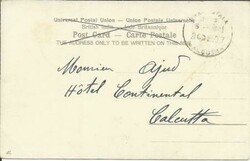 Universal Postal Union - Union Postale Universelle
Post Card - Carte Postale
THE ADDRESS ONLY TO BE WRITTEN ON THIS
Monsieur Ajud
Hôtel Continental
Calcutta